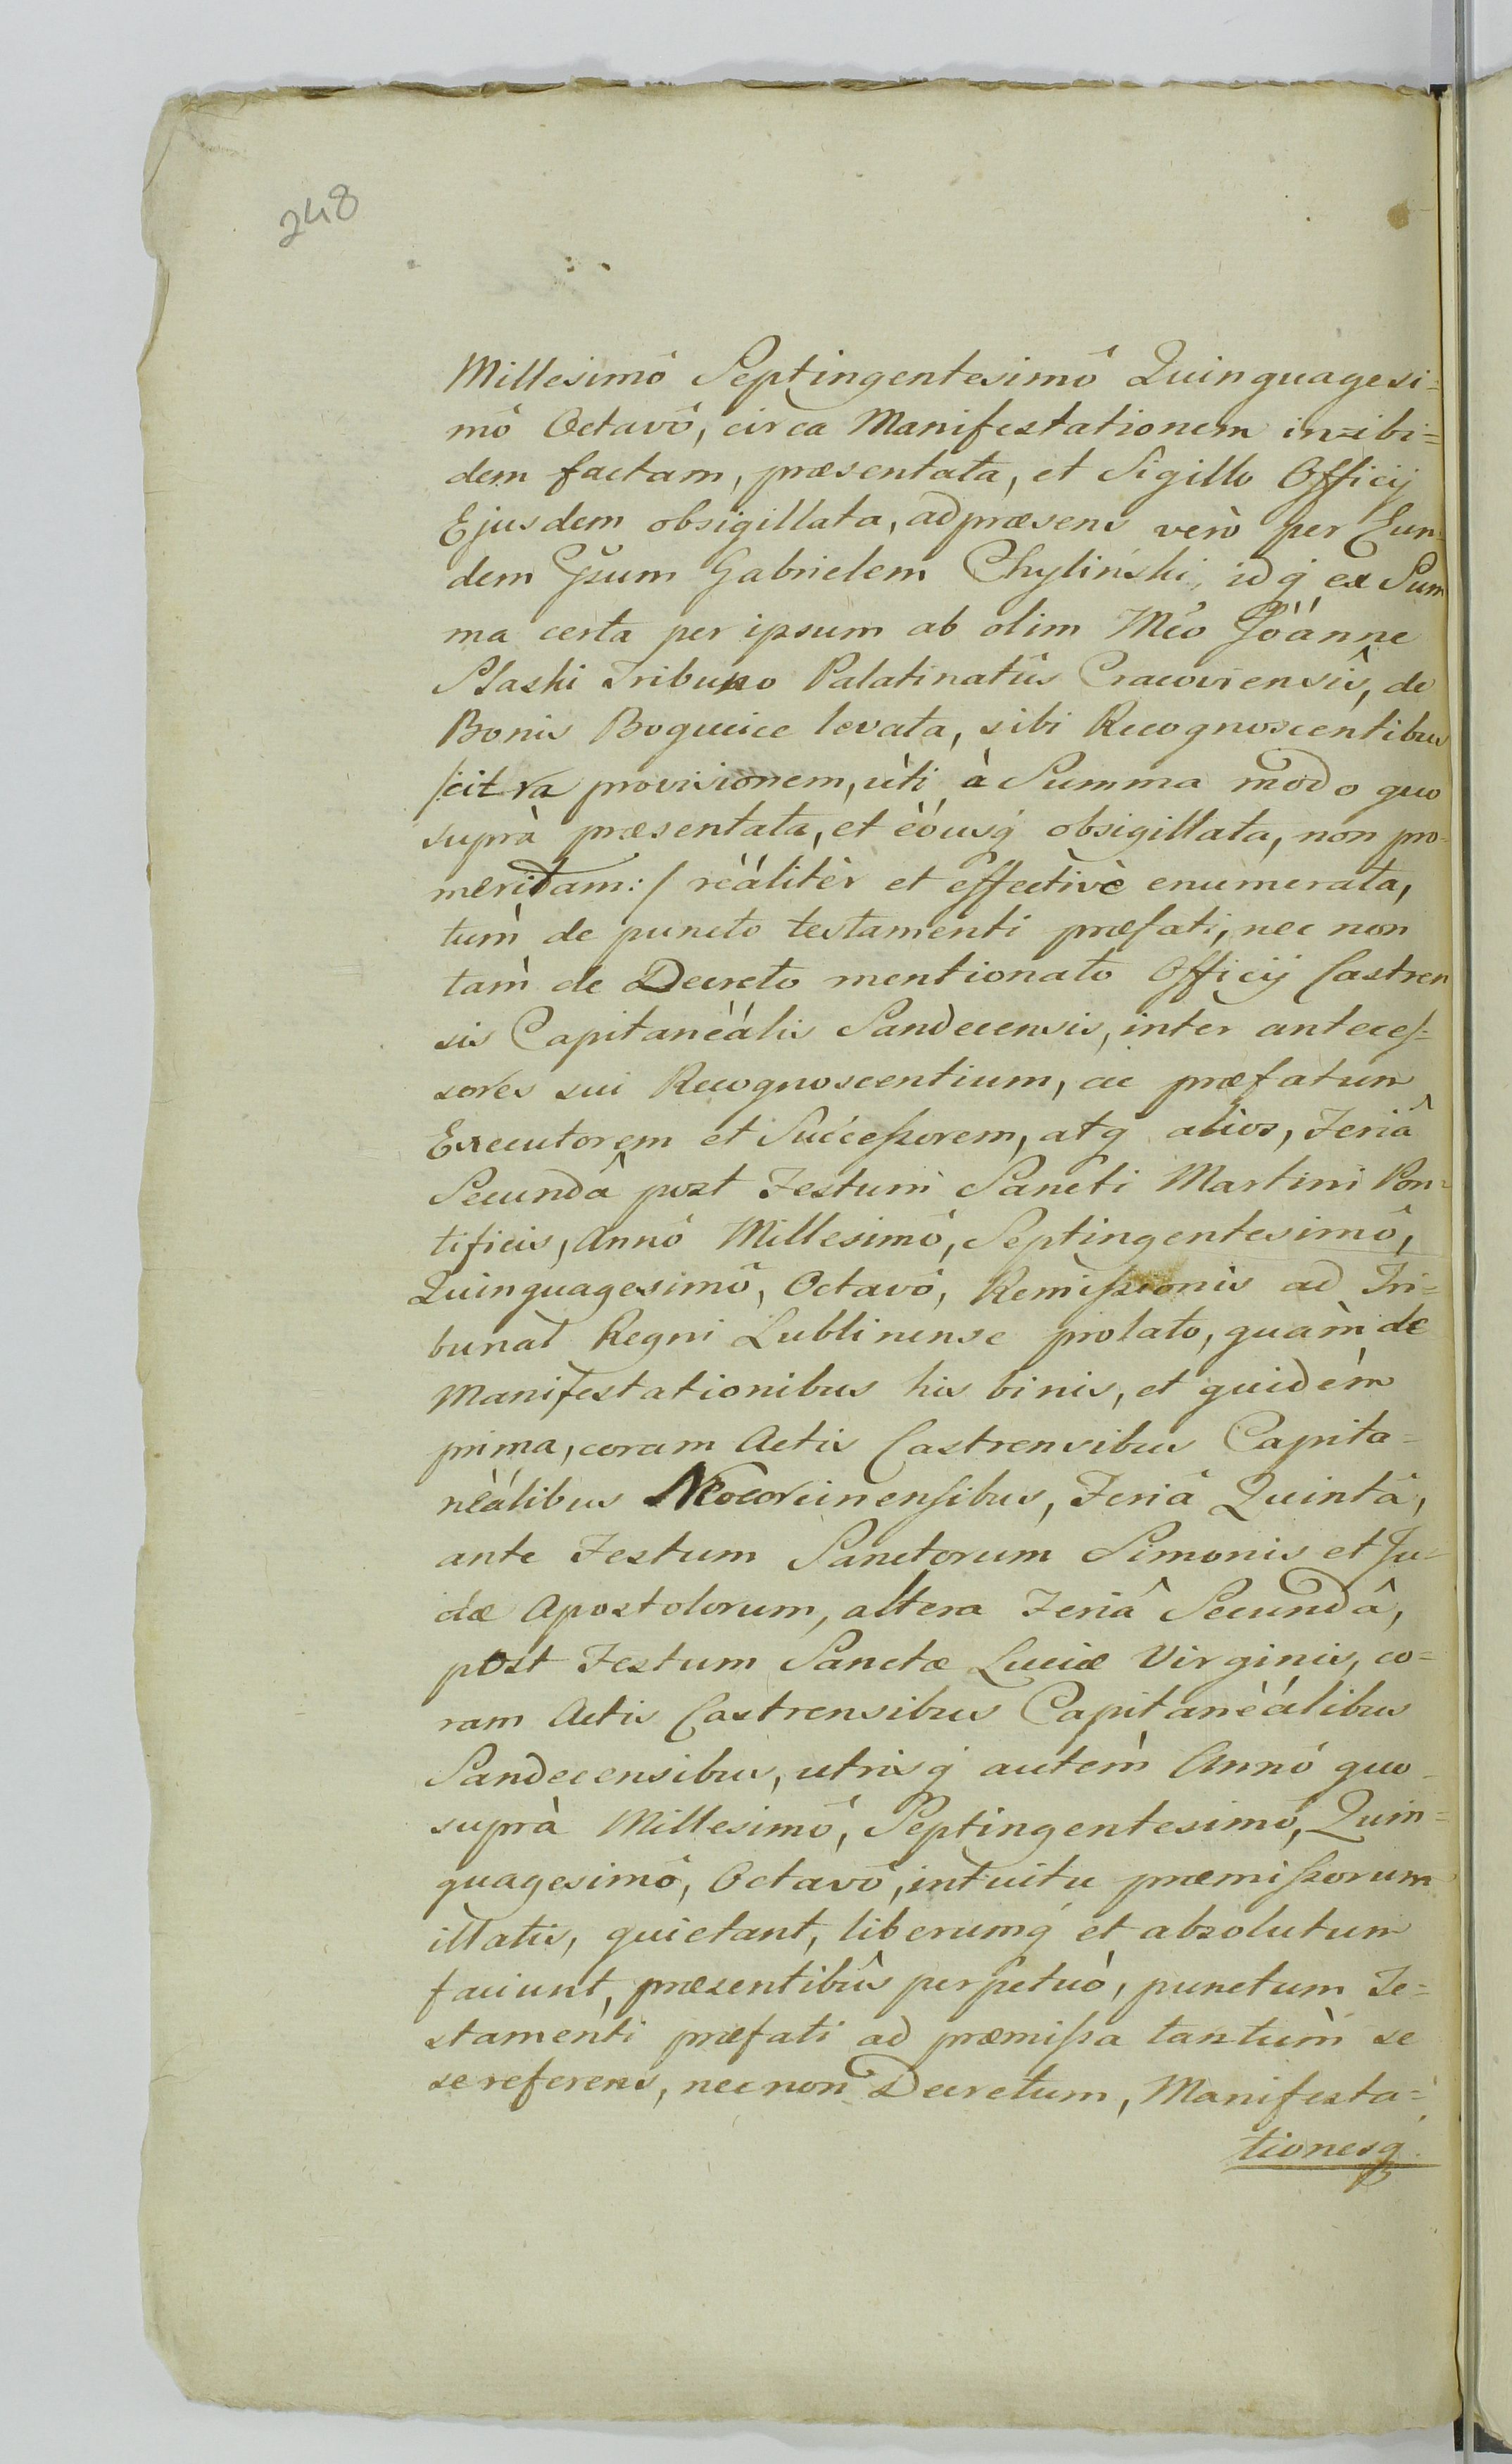 248
Millesimô Septingentesimô Quinquagesi=
mô Octavô, circa Manifestationem in=ibi=
dem factam, præsentata, et Sigillo Officij
Ejusdem obsigillata, ad præsens verò per Eun=
dem Gsum Gabrielem Chyliński, idq́ ex Sum
ma certa per ipsum ab olim Mco Jòánne
Slaski Tribuno Palatinatûs Cracoviensis, de
Bonis Bogucice levata, sibi Recognoscentibus
/:citra provisionem, ùti à Summa modo quo
suprà præsentata, et èóusq́ obsigillata, non pro=
meritam:/ rèálitèr et effectivè enumerata,
tùm de puncto testamenti præfati, nec non
tàm de Decreto mentionato Officij Castren
sis Capitanèális Sandecensis, inter anteces=
sores sui Recognoscentium, ac præfatum
Executorem et Successorem, atq alios, Feriâ
Secundâ post Festum Sancti Martini Pon=
tificis, Annô Millesimô, Septingentesimô,
Quinquagesimô, Octavô, Remissionis ad Tri=
bunal Regni Lublinense prolato, quàm de
Manifestationibus his binis, et quidèm
prima, coram Actis Castrensibus Capita=
nèálibus Neocorcinensibus, Feriâ Quintâ,
ante Festum Sanctorum Simonis et Ju=
dæ Apostolorum, altera Feriâ Secundâ,
post Festum Sanctæ Luciæ Virginis, co=
ram Actis Castrensibus Capitanèálibus
Sandecensibus, utrisq́ autèm Annô quo
suprà Millesimô, Septingentesimô, Quin=
quagesimô, Octavô, intuitu præmissorum
illatis, quietant, liberumq́ et absolutum
faciunt, præsentibûs perpetuò, punctum Te=
stamenti præfati ad præmissa tantùm se
se referens, necnon Decretum, Manifesta=
tionesq